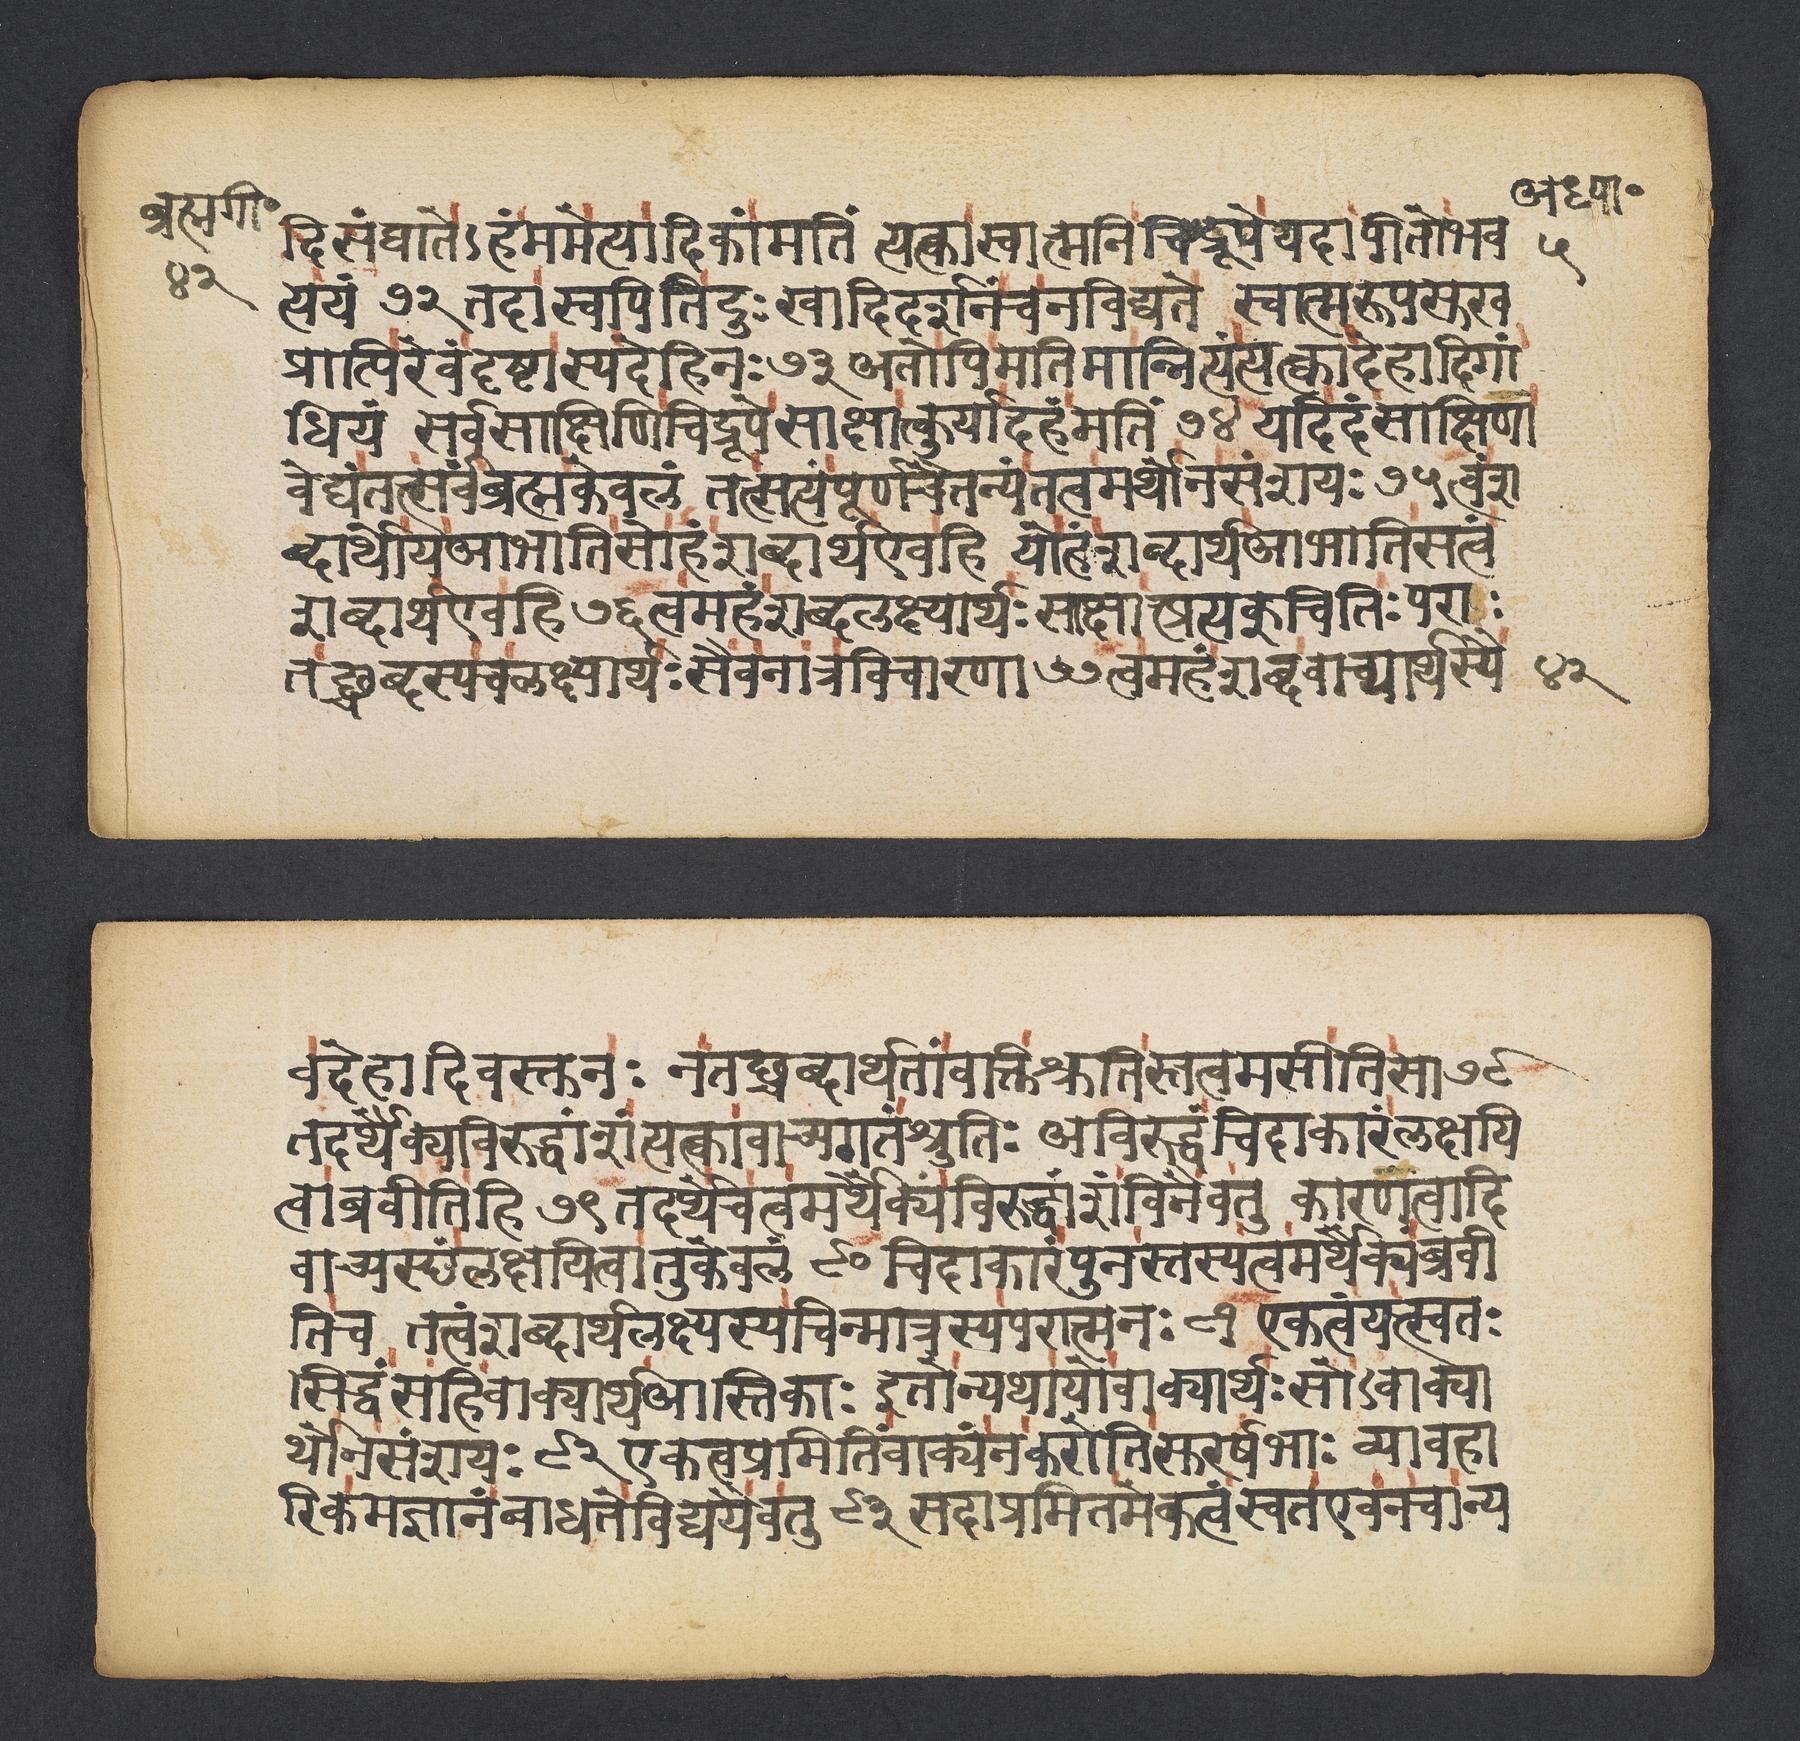 ब्रह्मगी॰
४२
अध्या॰
५
दिसंघातेऽहंममेत्यादिकांमतिं त्यत्कास्वात्मनिचिद्रूपेयदापीतोभव
त्ययं ७२ तदास्वपितिदुःखादिदर्शनंचनविद्यते स्वात्मरूपसुख
प्राप्तिरेवंदृष्टास्यदेहिनः ७३ अतोपिमतिमान्नित्यंत्यत्कादेहादिगां
धियं सर्वसाक्षिणिचिद्रूपेसाक्षात्कुर्यादहंमतिं ७४ यदिदंसाक्षिणा
वेद्यंतत्सर्वंब्रह्मकेवलं तत्सत्यंपूर्णचैतन्यंतत्वमर्थोनसंशयः ७५ त्वंश
ब्दार्थोयआभातिसोहंशब्दार्थएवहि योहंशब्दार्थआभातिसत्वं
शब्दार्थएवहि ७६ त्वमहंशब्दलक्ष्यार्थः साक्षात्प्रत्यक्चितिः परा
तच्छब्दस्यचलक्ष्यार्थः सैवनात्रविचारणा ७७ त्वमहंशब्दवाच्यार्थस्यै
४२
वदेहादिवस्तुनः नतच्छब्दार्थतांवक्तिश्रुतिस्तत्वमसीतिसा ७८
तदर्थैक्यविरुद्धांशंत्यत्कावाच्यगतंश्रुतिः अविरुद्धंचिदाकारंलक्षयि
त्वाब्रवीतिहि ७९ तदर्थेचत्वमर्थैक्यंविरुद्धांशंविनैवतु कारणत्वादि
वाच्यस्छंलक्षयित्वातुकेवलं ८० चिदाकारंपुनस्तस्यत्वमर्थैक्यंब्रवी
तिच तत्वंशब्दार्थलक्ष्यस्यचिन्मात्रस्यपरात्मनः ८१ एकत्वंयत्स्वतः
सिद्धंसहिवाक्यार्थआस्तिकाः इतोन्यथायोवाक्यार्थः सोऽवाक्या
र्थोनसंशयः ८२ एकत्वप्रमितिंवाक्यंनकरोतिसुरर्षभाः व्यावहा
रिकमज्ञानंबाधतेविद्ययैवतु ८३ सदाप्रमितमेकत्वंस्वतएवनचान्य